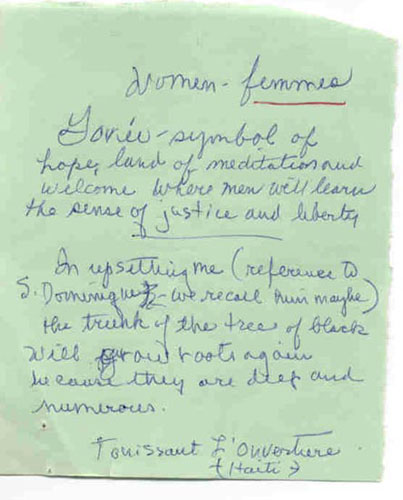 women - femmes
Gorée - symbol of
hope, land of meditation and
welcome where men will learn
the sense of justice and liberty
In upsetting me (reference to
S. Domingue - we recall him maybe)
the trunk of the tree of black
will grow roots again
because they are deep and
numerous.
Touissaut L'Ouverture
(Haiti)